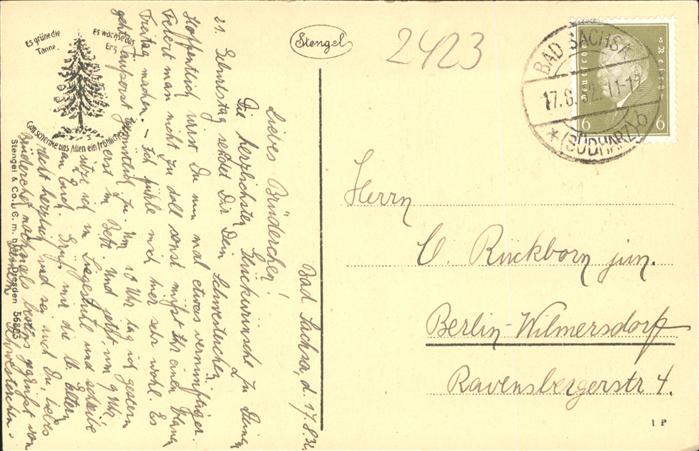 Es grüne die
Tanne,
Es wachse das
Erz
Gott schenke uns Allen ein fröhliches
Stengel
2423
BAD SACHSA
17.8. 32. 11-12
* (SÜDHARZ) b
6 6
Bad Sachsa, d. 17.8.32.
Liebes Brüderchen!
Die herzlichsten Glückwünsche zu Deinem
21. Geburtstag sendet Dir Dein Schwesterchen.
Hoffentlich wirst Du nun mal etwas vernünftiger.
Feiert man nicht zu doll sonst müßt Ihr einen
Freitag machen. – Ich fühle mich hier sehr wohl. Es
geht äußerst gemütlich zu. Um 10 Uhr lag ich gestern
erst im Bett. Und jetzt um 9 Uhr
sitze ich im Liegestuhl und schreibe
an Euch. Grüß mir die lb. Eltern
recht herzlich und sei auch Du, liebes
Brüderchen nochmals bestens gegrüßt von
Schwesterchen.
Stengel & Co., G. m. b. H., Dresden
Herrn
Ruckborn jun.
Berlin-Wilmersdorf
Ravensbergerstr 4.
1 P